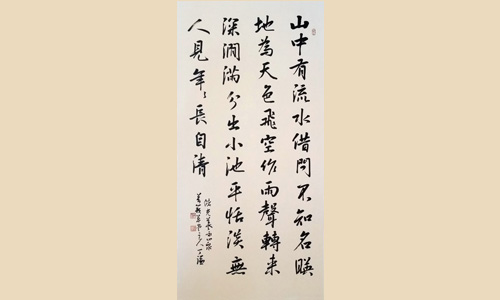 山中有流水借問不知名暎
地為天色飛空作雨聲轉来
深澗滿分出小池平恬淡無
人見年々長自清